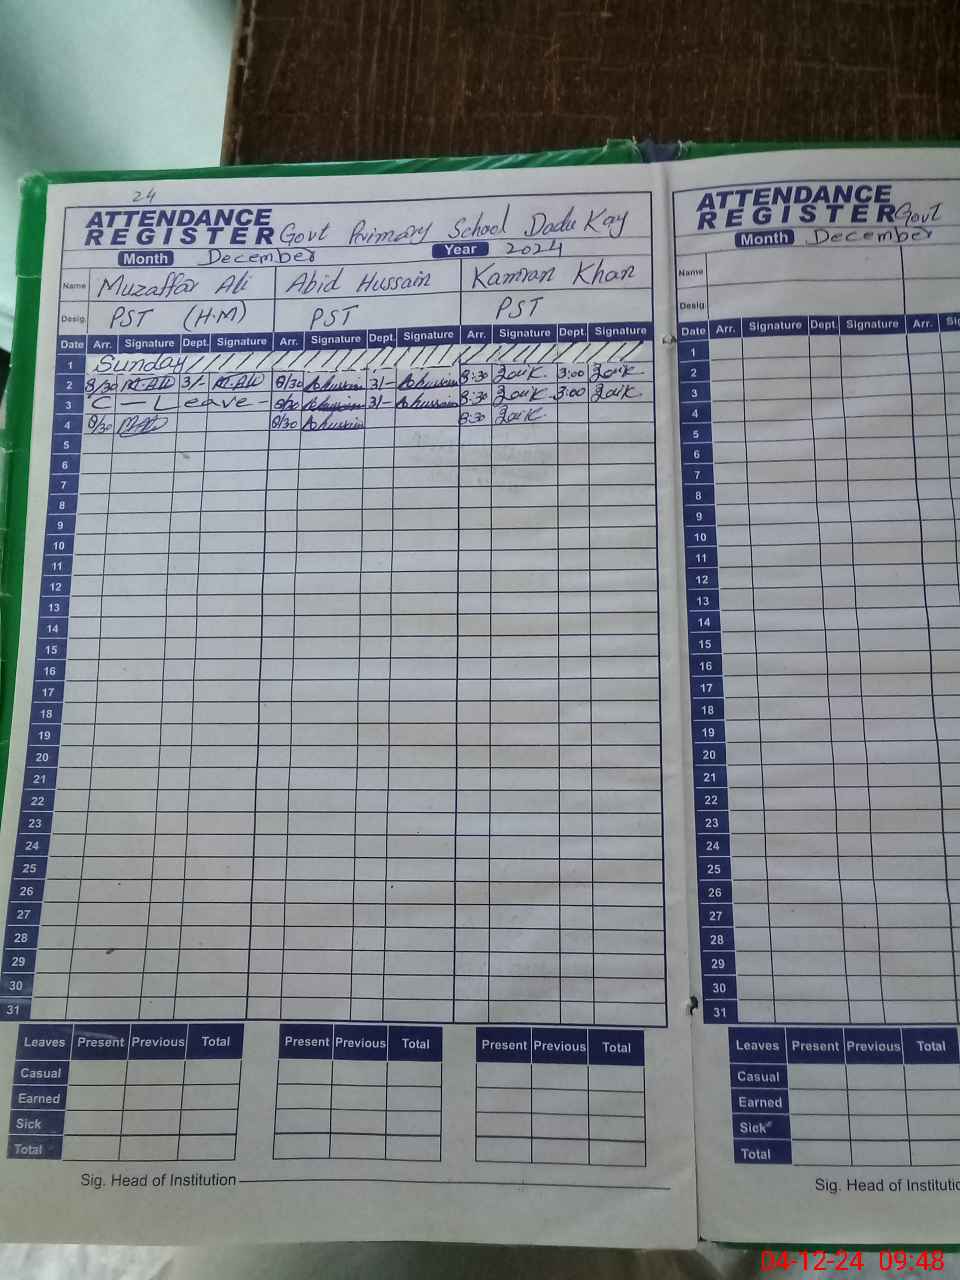 24
ATTENDANCE
REGISTER Govt Primary School Dadu Kay
Month December Year 2024
Name Muzaffar Ali Abid Hussain Kamran Khan
Desig. PST (H.M) PST PST
Date Arr. Signature Dept. Signature Arr. Signature Dept. Signature Arr. Signature Dept. Signature
1 Sunday
2 8/30 M.Ali 3/- M.Ali 8/30 Abhussain 3/- Abhussain 8:30 3:00
3 C - Leave - 8/30 Abhussain 3/- Abhussain 8:30 3:00
4 8/30 8/30 Abhussain 8:30
5
6
7
8
9
10
11
12
13
14
15
16
17
18
19
20
21
22
23
24
25
26
27
28
29
30
31
Leaves Present Previous Total Present Previous Total Present Previous Total
Casual
Earned
Sick
Total
Sig. Head of Institution
ATTENDANCE
REGISTER Govt
Month December
Name
Desig.
Date Arr. Signature Dept. Signature Arr.
1
2
3
4
5
6
7
8
9
10
11
12
13
14
15
16
17
18
19
20
21
22
23
24
25
26
27
28
29
30
31
Leaves Present Previous Total
Casual
Earned
Sick
Total
Sig. Head of
04-12-24 09:48